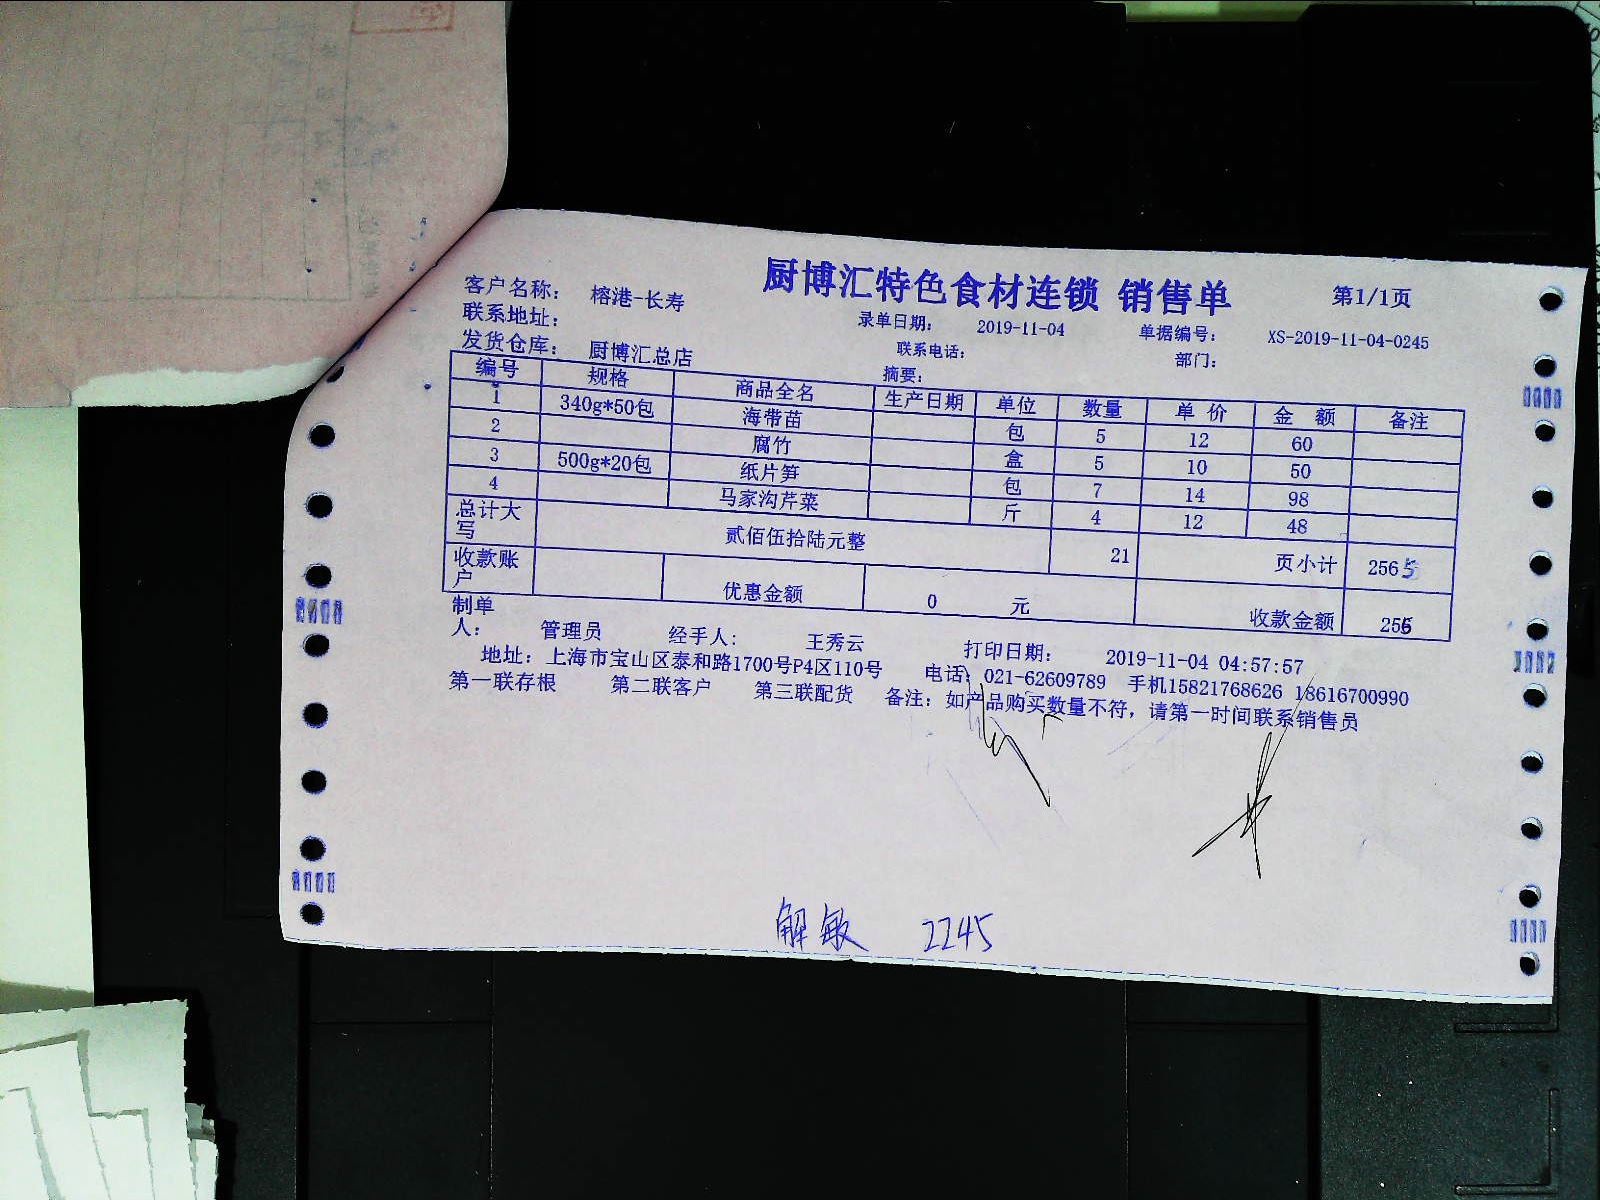 厨博汇特色食材连锁 销售单 第1/1页
客户名称： 榕港-长寿 录单日期： 2019-11-04 单据编号： XS-2019-11-04-0245
联系地址： 联系电话： 部门：
发货仓库： 厨博汇总店 摘要：
编号 规格 商品全名 生产日期 单位 数量 单 价 金 额 备注
1 340g*50包 海带苗 包 5 12 60
2 腐竹 盒 5 10 50
3 500g*20包 纸片笋 包 7 14 98
4 马家沟芹菜 斤 4 12 48
总计大写 贰佰伍拾陆元整 21 页小计 256 5
收款账户 优惠金额 0 元 收款金额 256
制单人： 管理员 经手人： 王秀云 打印日期： 2019-11-04 04:57:57
地址：上海市宝山区泰和路1700号P4区110号 电话：021-62609789 手机15821768626 18616700990
第一联存根 第二联客户 第三联配货 备注：如产品购买数量不符，请第一时间联系销售员
解敏 2245